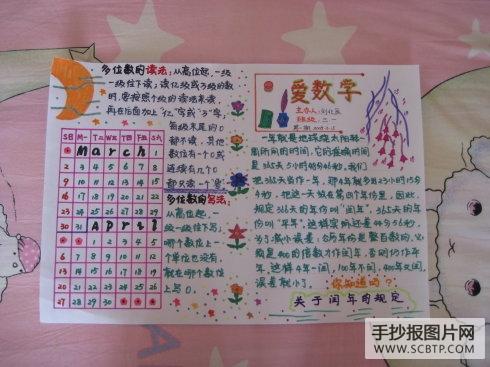 多位数的读法:从高位起,一级
一级往下读;读亿级或万级的数
时,要按照个级的读法来读,
再在后面加上“亿”字或“万”字,
每级末尾的0
都不读,其他
数位有一个0或
连续有几个0
都只读一个“零”
多位数的写法:
从高位起,一
级一级往下写,
哪个数位上一
个单位也没有,
就在哪个数位
上写0。
March 1
2 3 4 5 6 7 8
9 10 11 12 13 14 15
16 17 18 19 20 21 22
23 24 25 26 27 28 29
30 31 April
27 28 29 30
愛数学
主办人:
班级:三·一
第一期
一年就是地球绕太阳转一
周所用的时间,它的准确时间
是365天5小时48分46秒。我们
把365天当作一年,那4年就多出23小时15分
4秒,把这一天放在第四个年份里,因此,
规定366天的年份叫“闰年”,365天的年
份叫“平年”。这样实际还差44分56秒,
为了减小误差:当有年份是整百数的,必
须是400的倍数才作闰年,否则仍作平
年。这样4年一闰,100年不闰,400年又闰,
误差就小了。你知道吗?
关于闰年的规定
手抄报图片网
WWW.SCBTP.COM